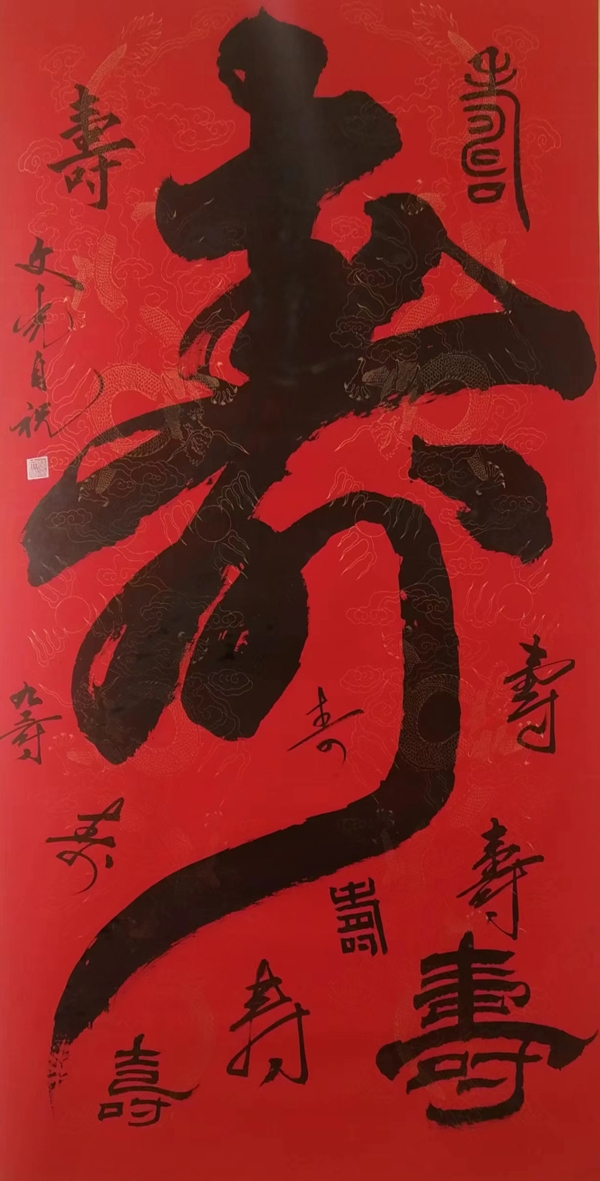 壽
壽
壽
文 自祝
壽
壽
九壽
壽
壽
壽
壽
壽
壽
壽